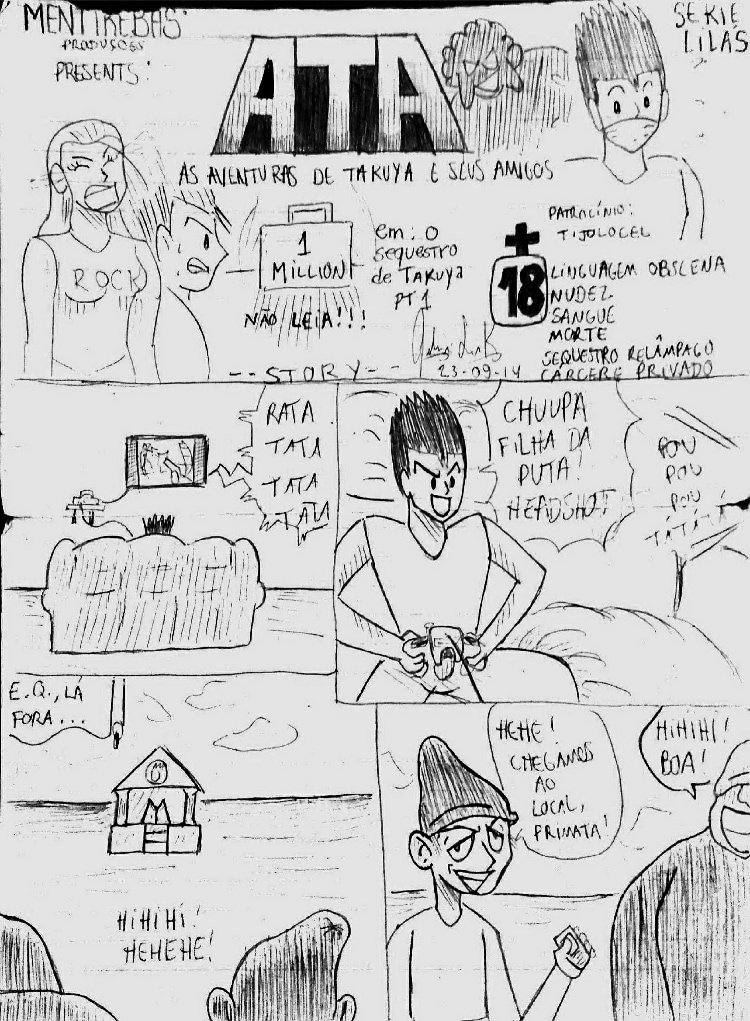 MENTIREBAS
PRODUÇÕES
PRESENTS:
SERIE
LILÁS
ATA
AS AVENTURAS DE TAKUYA E SEUS AMIGOS
ROCK
1
MILLION
NÃO LEIA!!!
em: O
sequestro
de Takuya
PT 1
PATROCÍNIO:
TIJOLOCEL
+
18
LINGUAGEM OBSCENA
NUDEZ
SANGUE
MORTE
SEQUESTRO RELÂMPAGO
CÁRCERE PRIVADO
23-09-14
--STORY--
RATA
TATA
TATA
TATA
CHUUPA
FILHA DA
PUTA!
HEADSHOT
POU
POU
POU
TÁTÁTÁ
E.Q., LÁ
FORA...
M
HIHIHI!
HEHEHE!
HEHE!
CHEGAMOS
AO
LOCAL,
PRIMATA!
HIHIHI!
BOA!